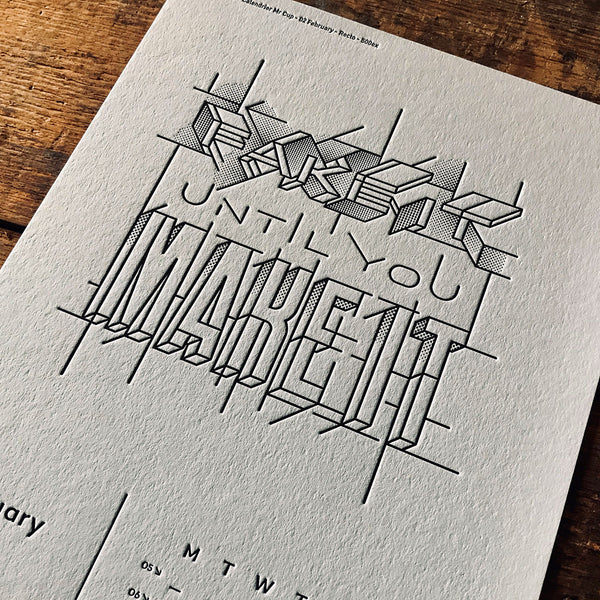 Calendrier Mr Cup • 02 February • Recto • 600ex
FAKE IT
UNTIL YOU
MAKE IT
uary
M T W T
05
06